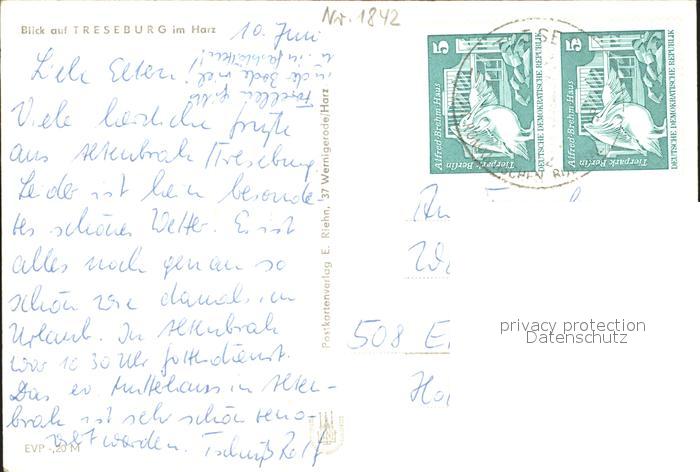 Nr. 1842
Blick auf TRESEBURG im Harz
10. Juni
Liebe Eltern!
Forellen gibts
in der Bode viel!
Viele herzliche Grüße
aus Altenbrak/Treseburg
Leider ist kein besonde-
res schönes Wetter. Es ist
alles noch genau so
schön wie damals im
Urlaub. In Altenbrak
war 10 30 Uhr Gottesdienst.
Das ev. Mütterhaus in Alten-
brak ist sehr schön reno-
viert worden. Tschüß Rolf
EVP -,20 M
Postkartenverlag E. Riehn, 37 Wernigerode/Harz
5
Alfred-Brehm-Haus
Tierpark Berlin
DEUTSCHE DEMOKRATISCHE REPUBLIK
5
Alfred-Brehm-Haus
Tierpark Berlin
DEUTSCHE DEMOKRATISCHE REPUBLIK
An
508 E
privacy protection
Datenschutz